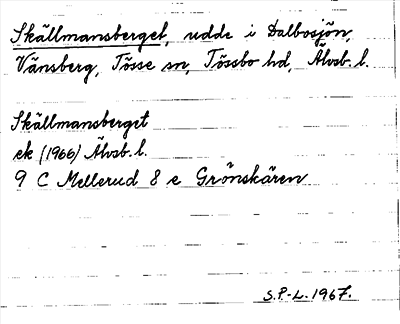 Skällmansberget, udde i Dalbosjön,
Vänsberg, Tösse sn, Tössbo hd, Älvsb. l.
Skällmansberget
ek (1966) Älvsb. l.
9 C Mellerud 8 e Grönskären
S.P.-L. 1967.